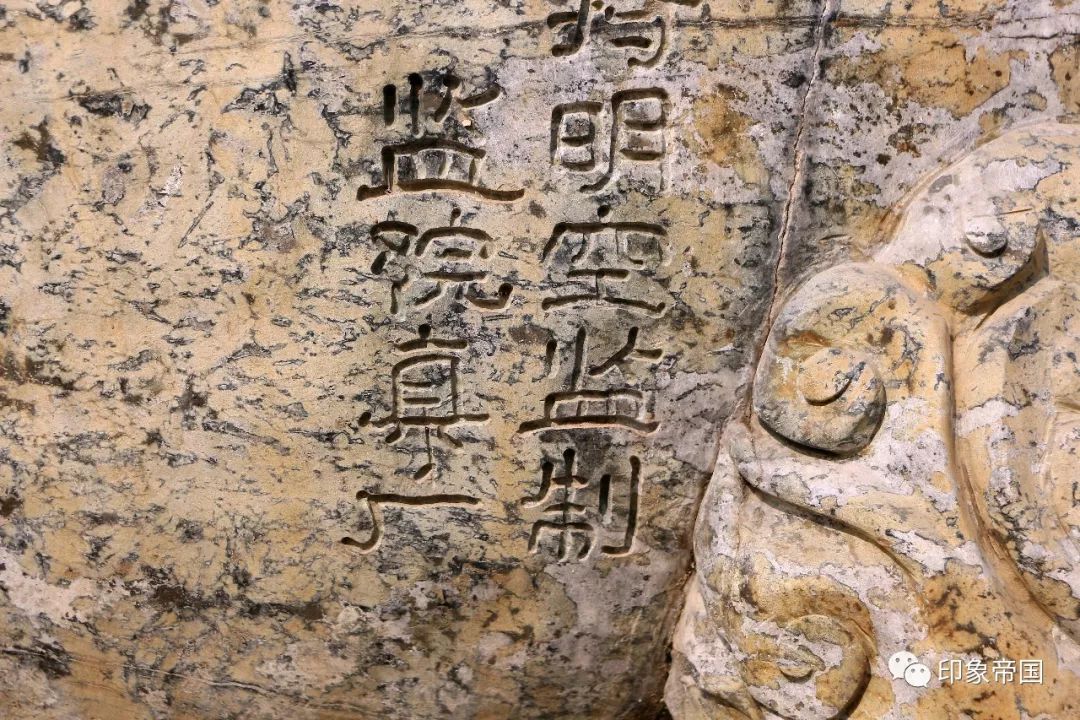 明空监制
监院真广
印象帝国